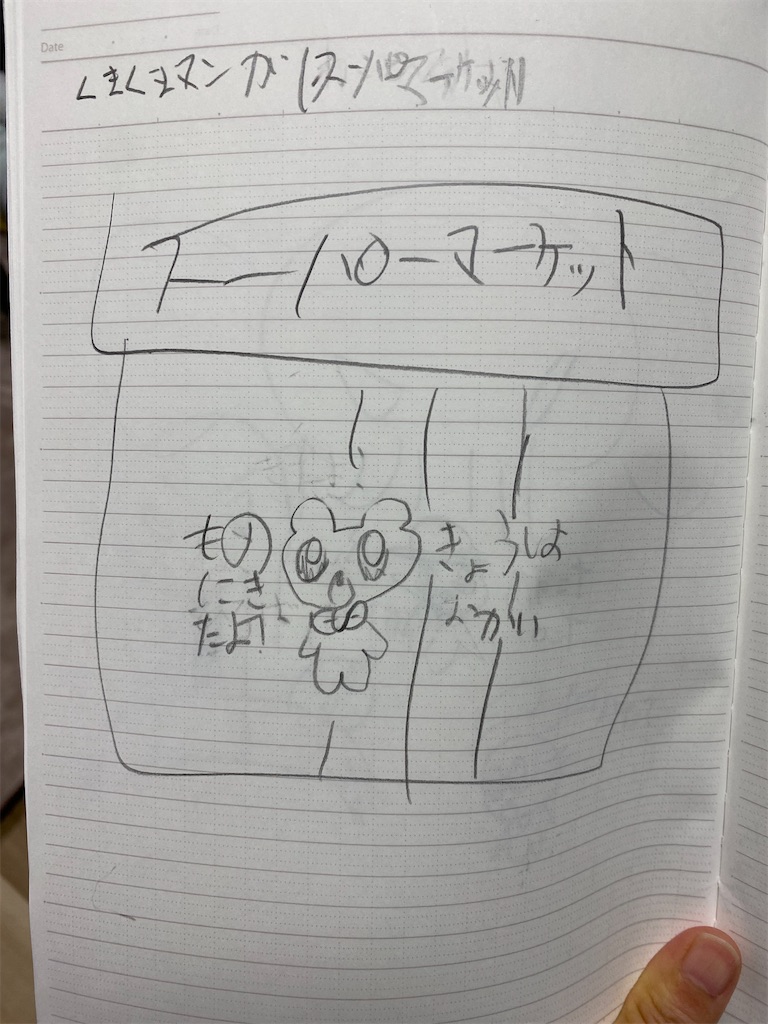 Date
くまくまマンガ(スーパーマーケット)
スーパーマーケット
きょうは
おかい
もの
にき
たよ!